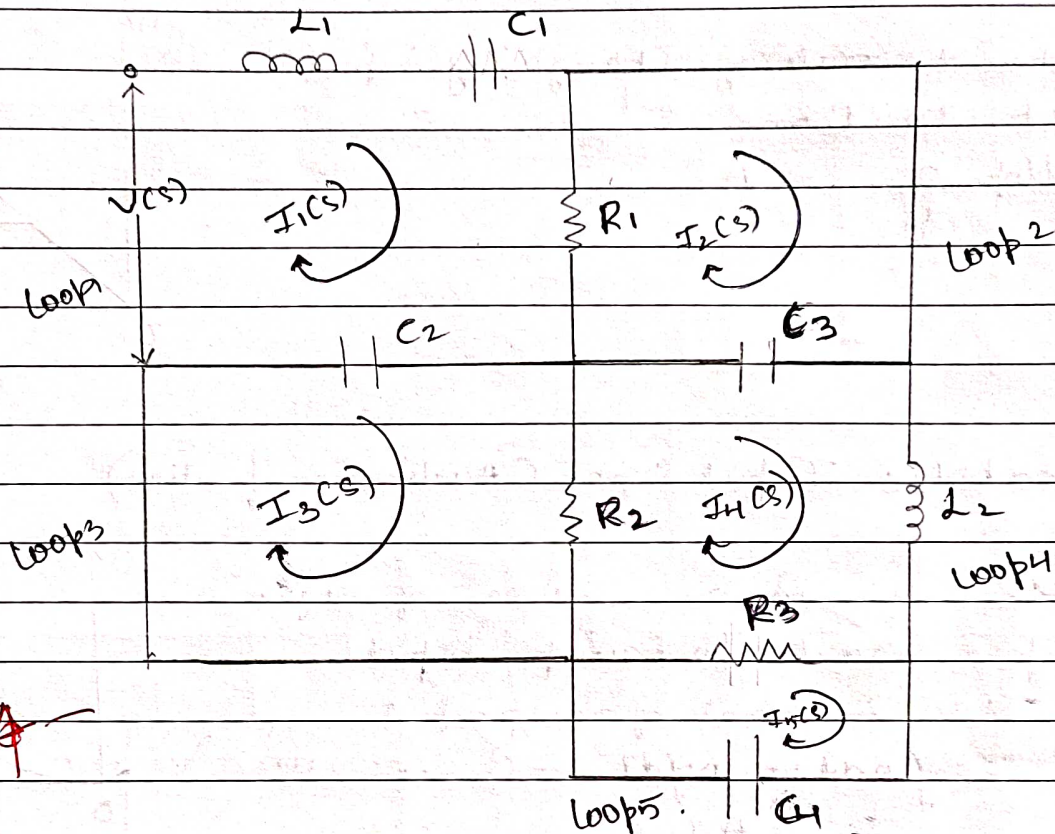 L1 C1
V(s) I1(s) R1 I2(s) Loop2
Loop1
C2 C3
I3(s) R2 I4(s) L2
Loop3 Loop4
R3
I5(s)
Loop5. C4